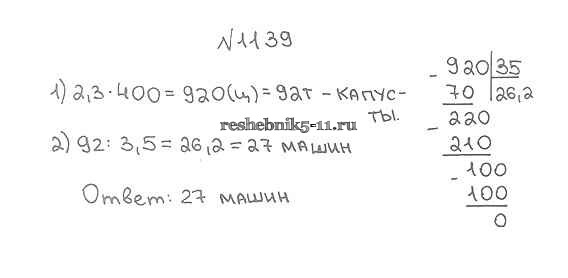 N1139
1) 2,3·400=920(ц)=92т - КАПУС-
ТЫ.
reshebnik5-11.ru
2) 92:3,5=26,2=27 МАШИН
Ответ: 27 МАШИН
- 920|35
70 |26,2
- 220
210
- 100
100
0